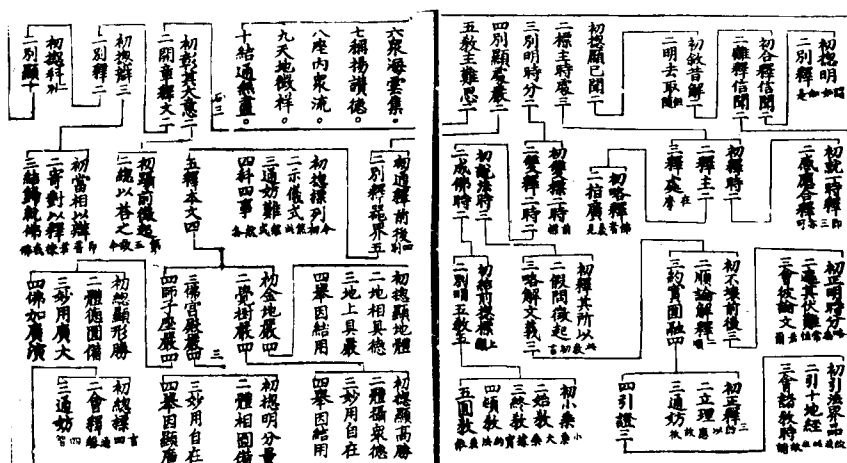 初揔明二
二別釋
初合釋信聞二
二離釋信聞
初敘昔解二
二明去取
初揔顯已聞二
二標主時處三
三別明時分二
四別顯處嚴二
五教主難思
初就一時釋三
二感應合釋
初釋時二
二釋主二
三釋處
初略釋
二指廣
初雙標二時
二雙釋二時二
初說法時三
二成佛時二
初正明時分
二遮其伏難
三會彼論文
初不壞前後三
二順論解釋
三約實圓融四
初釋其所以
二假問徵起
三略解文義三
初結前揔標
二別明五教五
初引法界品
二引十地經
三會說教時
初正釋
二立理
三通妨
四引證三
初小乘
二始教
三終教
四頓教
五圓教
六眾海雲集。
七稱揚讚德。
八座內眾流。
九天地徵祥。
十結通無盡。
初彰其大意二
二開章釋文二
初揔辯三
二別釋二
初揔科列
二別顯十
初通釋前後
二別釋器界五
初揔標列
二示儀式
三通妨難
四科四事
五釋本文四
初躡前徵起
二總以荅之
初當相以辯
二寄對以釋
三結歸就佛
初揔顯地體
二地相具德
三地上具嚴
四舉因結用
初金地嚴四
二覺樹嚴四
三佛宮殿嚴四
四師子座嚴四
初總顯形勝
二體德圓備
三妙用廣大
四佛如廣演
初揔顯高勝
二體攝眾德
三妙用自在
四舉因結用
初揔明分量
二體相圓備
三妙用自在
四舉因顯廣
初總標
二會釋
三通妨